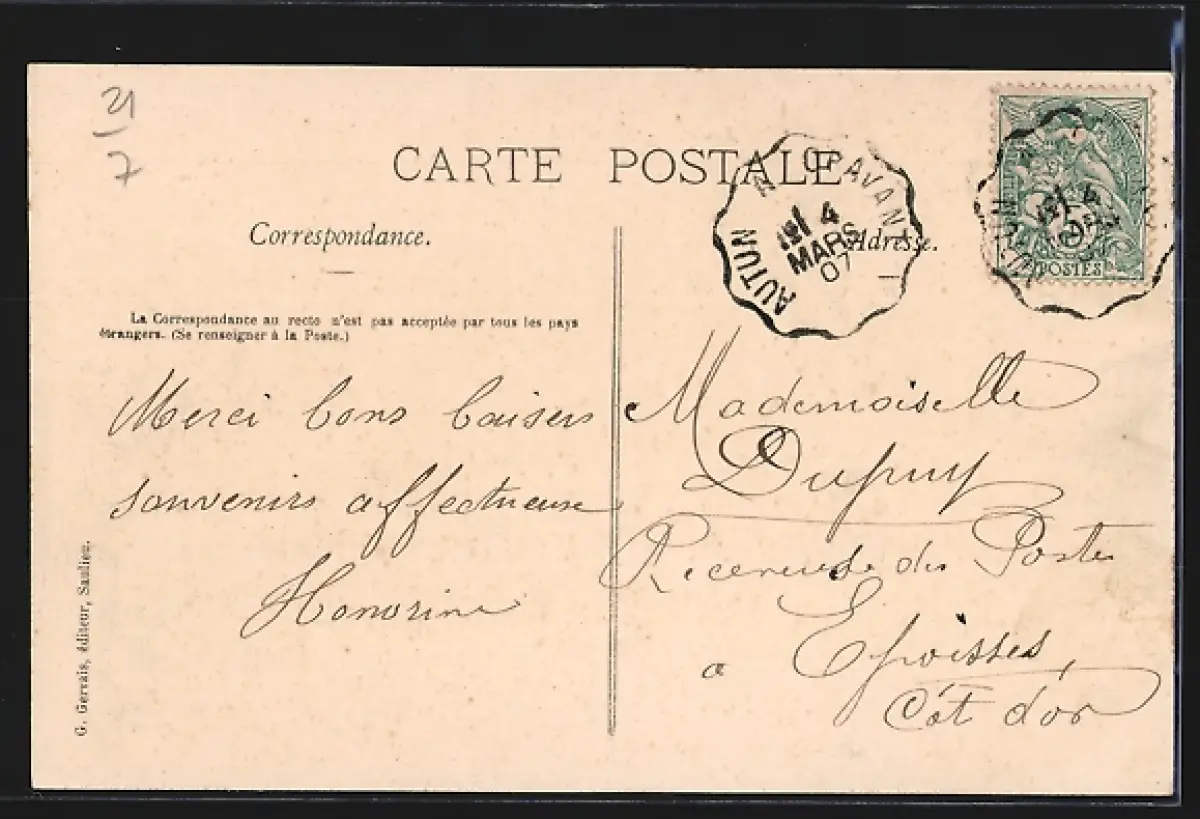 21
7
CARTE POSTALE
AUTUN A CRAVANT
4
MARS
07
POSTES
Correspondance.
Adresse.
La Correspondance au recto n'est pas acceptée par tous les pays
étrangers. (Se renseigner à la Poste.)
Merci bons baisers
souvenirs affectueux
Honorine
Mademoiselle
Dupuy
Receveuse des Postes
a Epoisses,
Côt d'or
G. Gervais, éditeur, Saulieu.